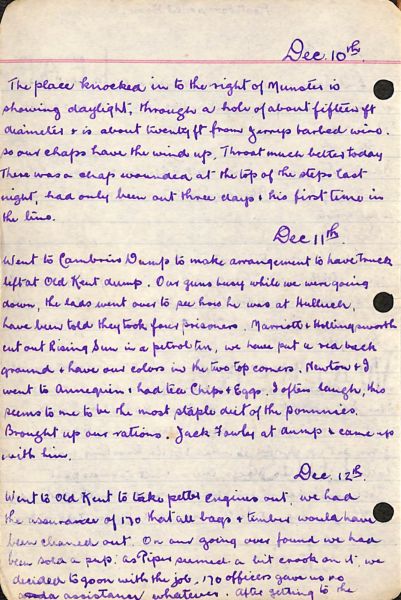 Dec. 10th.
The place knocked in to the right of Munster is
showing daylight, through a hole of about fifteen ft
diameter & is about twenty ft from Jerrys barbed wire.
so our chaps have the wind up. Throat much better today
There was a chap wounded at the top of the steps last
night, had only been out three days & his first time in
the line.
Dec 11th.
Went to Cambrins Dump to make arrangement to have truck
left at Old Kent dump. Our guns busy while we were going
down, the lads went over to see how he was at Hulluch,
have been told they took four prisoners. Marriott & Hollingsworth
cut out Rising Sun in a petrol tin, we have put a red back
ground & have our colors in the two top corners. Newton & I
went to Annequin & had tea Chips & Eggs. I often laugh, this
seems to me to be the most staple diet of the pommies.
Brought up our rations. Jack Fowley at dump & came up
with him.
Dec. 12th.
Went to Old Kent to take petter engines out, we had
the assurance of 170 that all bags & timber would have
been cleaned out. On our going over found we had
been sold a pup: as Piper seemed a bit crook on it, we
decided to go on with the job. 170 officers gave us no
assistance whatever. After getting to the